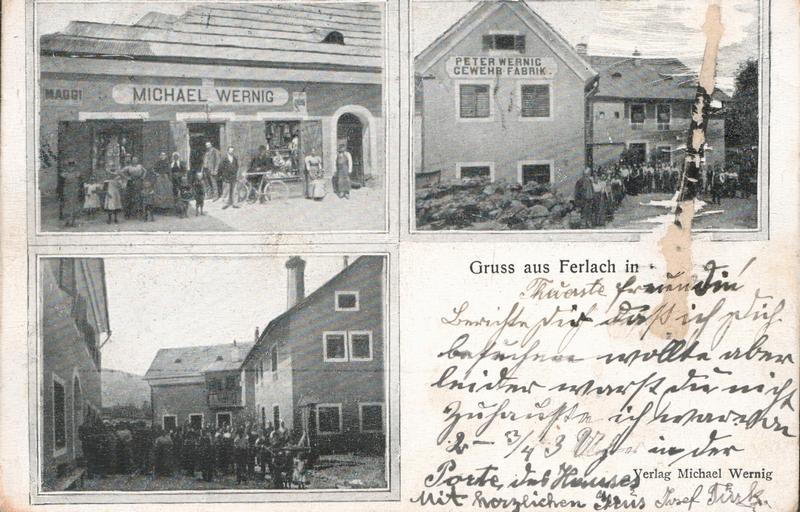 MAGGI
MICHAEL WERNIG
PETER WERNIG
GEWEHR-FABRIK.
Gruss aus Ferlach in
Theuerste Freundin!
Berichte dir daß ich dich
besuchen wollte aber
leider warst du nicht
Zuhauße ich war von
2 – 3/4 3 Uhr in der
Porte des Hauses
Verlag Michael Wernig
Mit herzlichen Grus Josef Türk.